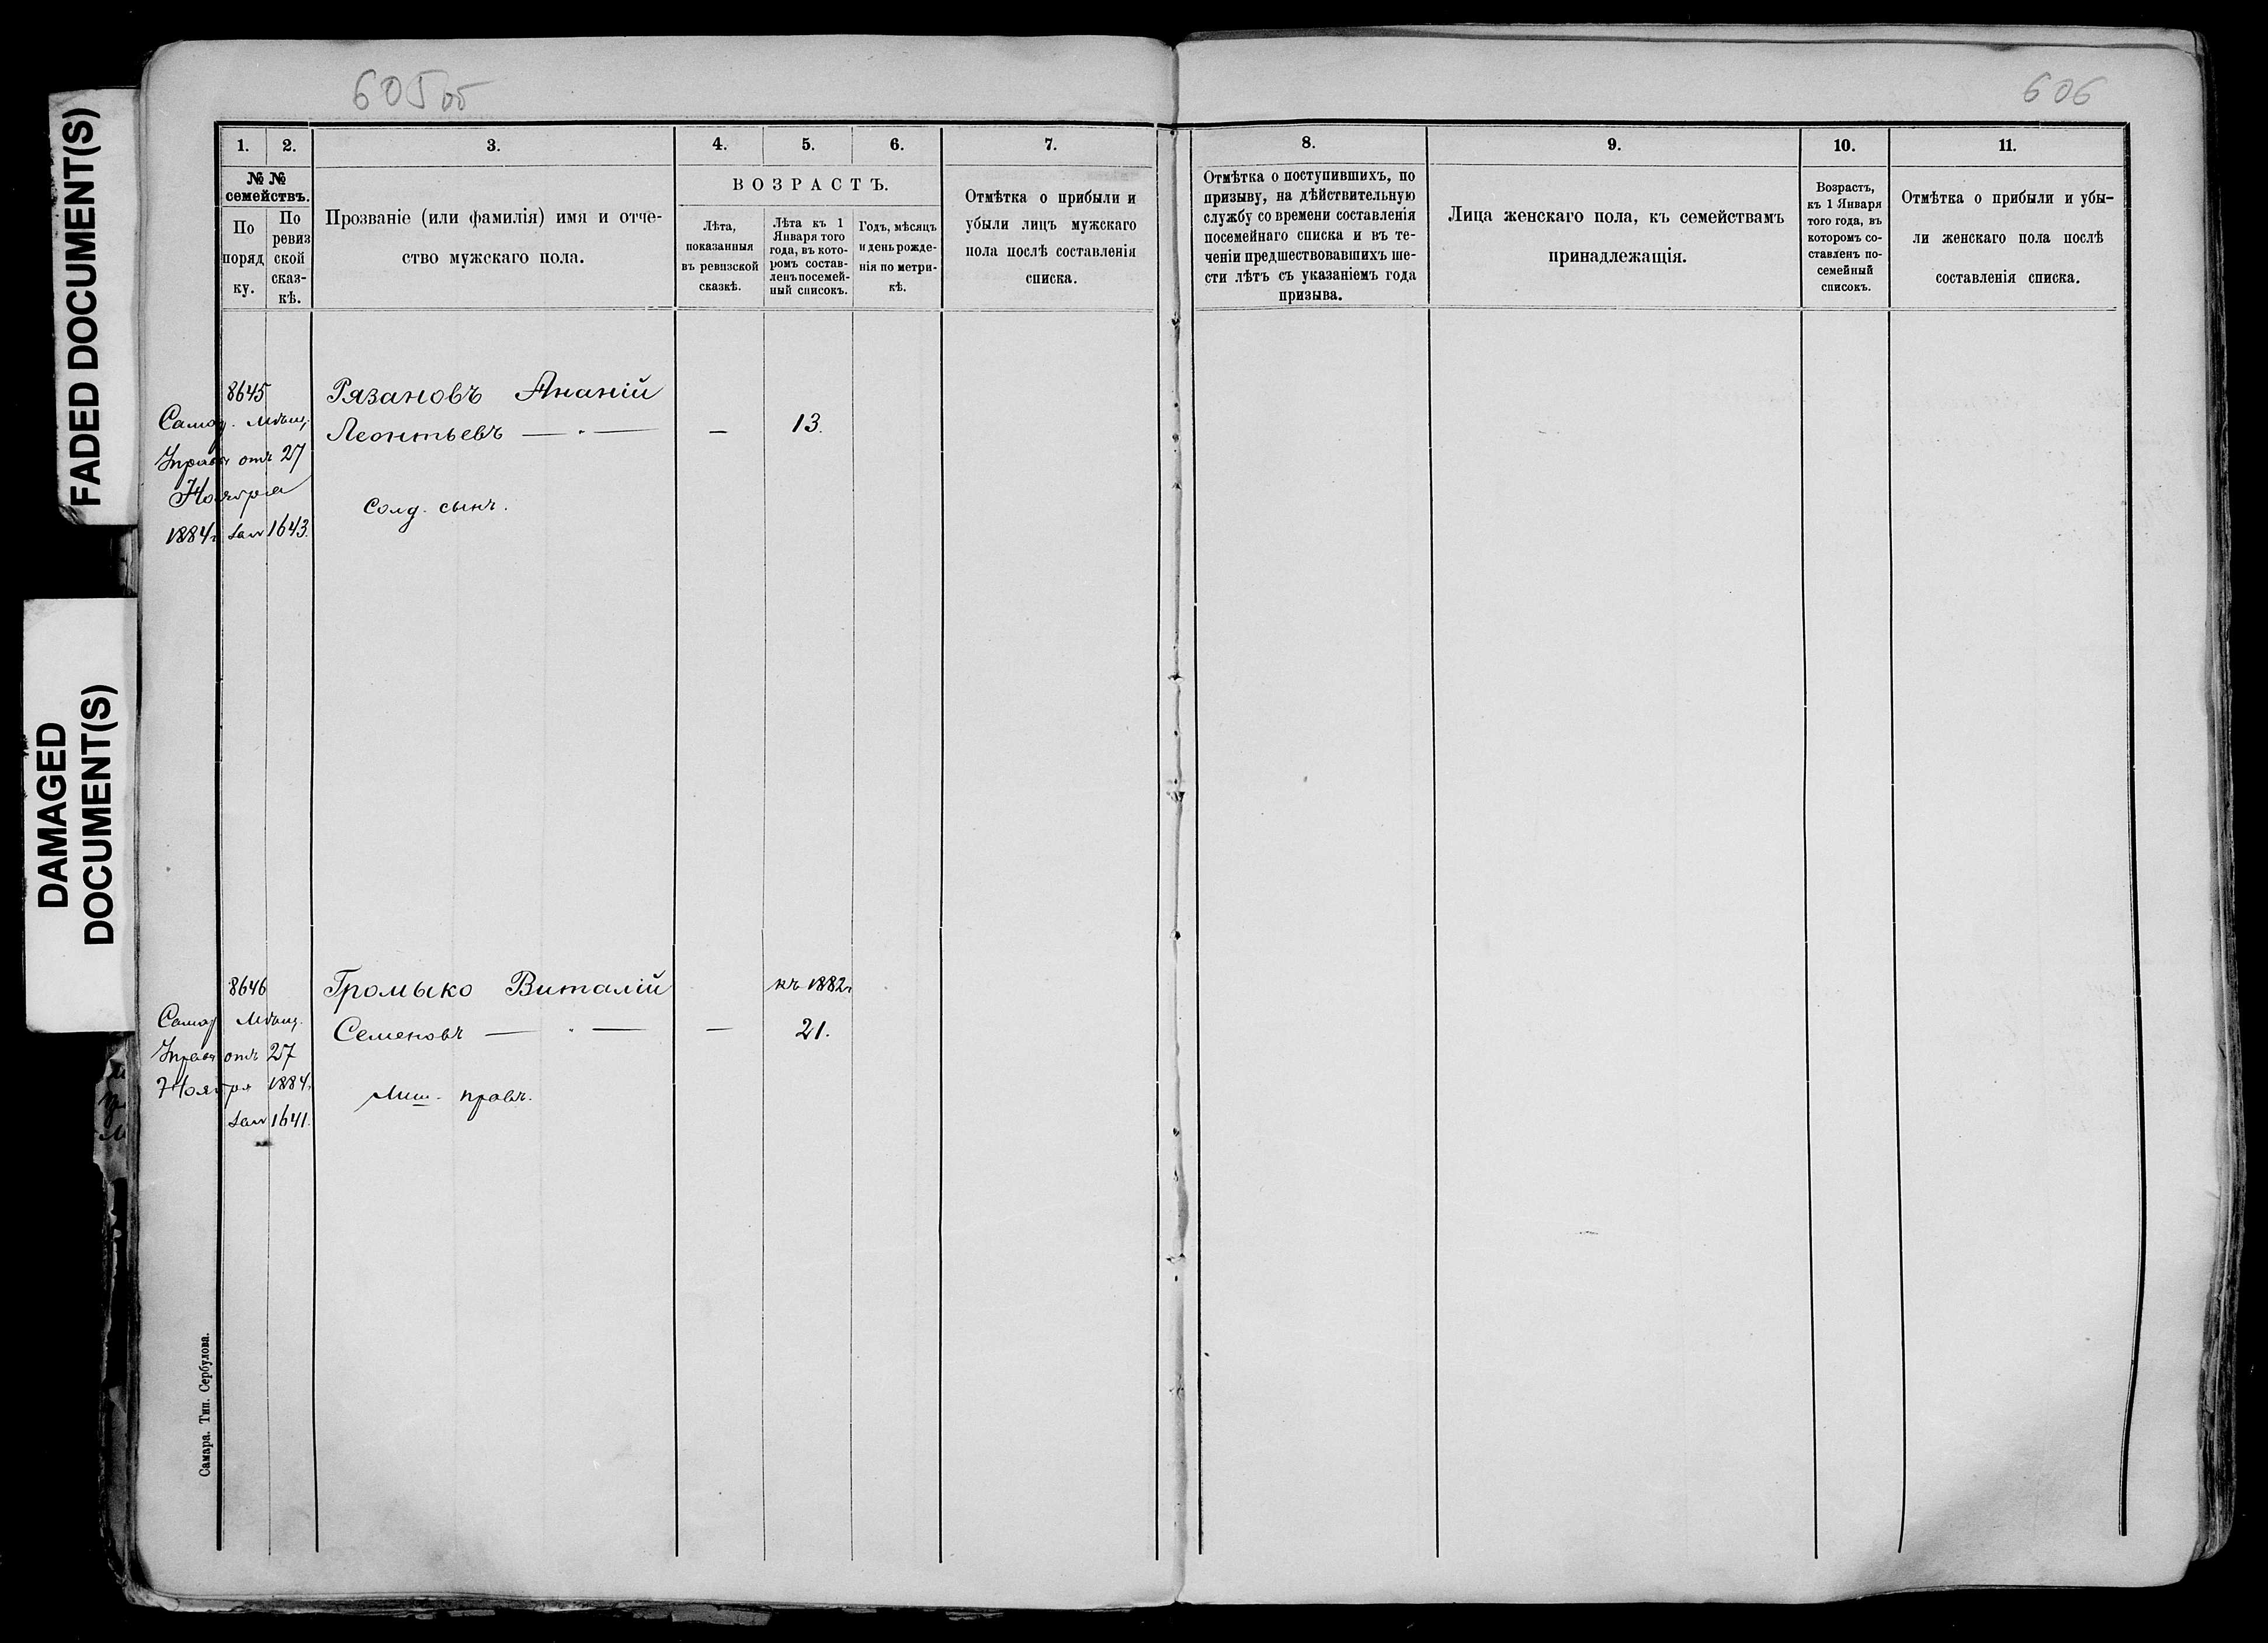 FADED DOCUMENT(S)
DAMAGED
DOCUMENT(S)
605об
606
1.
2.
3.
4.
5.
6.
7.
№ №
семействъ.
По
поряд
ку.
По
ревиз
ской
сказ-
кѣ.
Прозваніе (или фамилія) имя и отче-
ство мужскаго пола.
ВОЗРАСТЪ.
Лѣта,
показанныя
въ ревизской
сказкѣ.
Лѣта къ 1
Января того
года, въ кото-
ромъ состав-
ленъ посемей-
ный списокъ.
Годъ, мѣсяцъ
и день рожде-
нія по метри-
кѣ.
Отмѣтка о прибыли и
убыли лицъ мужскаго
пола послѣ составленія
списка.
8.
9.
10.
11.
Отмѣтка о поступившихъ, по
призыву, на дѣйствительную
службу со времени составленія
посемейнаго списка и въ те-
ченіи предшествовавшихъ ше-
сти лѣтъ съ указаніемъ года
призыва.
Лица женскаго пола, къ семействамъ
принадлежащія.
Возрастъ,
къ 1 Января
того года, въ
которомъ со-
ставленъ по-
семейный
списокъ.
Отмѣтка о прибыли и убы-
ли женскаго пола послѣ
составленія списка.
8645
Рязановъ Ананій
Леонтьевъ — · — — 13.
Самар. Мѣщ.
Управы отъ 27
Ноября
1884г за№ 1643.
Солд. сынъ.
8646
Громыко Виталій къ 1882г
Семеновъ — · — — 21.
Самар Мѣщ.
Управы отъ 27
Ноября 1884г.
за№ 1641.
Лиш. правъ.
Самара. Тип. Сербулова.